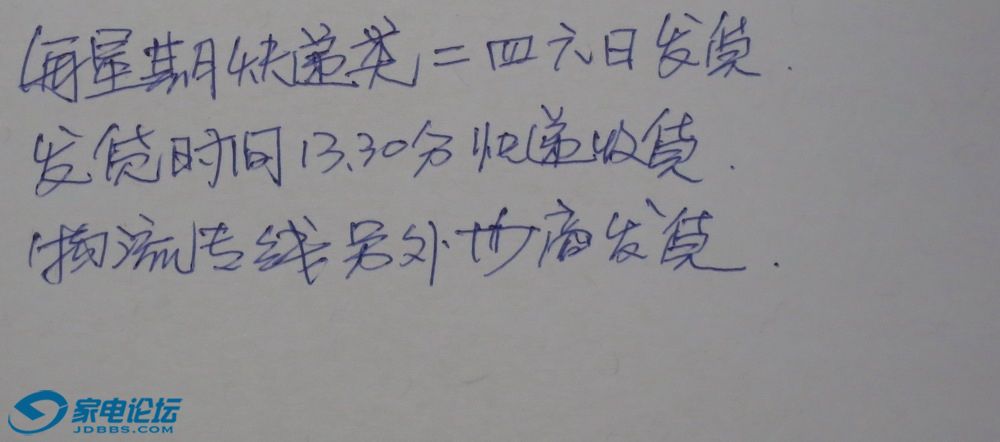 每星期快递类二四六日发货.
发货时间13.30分快递收货.
物流专线另外协商发货.
家电论坛
JDBBS.COM